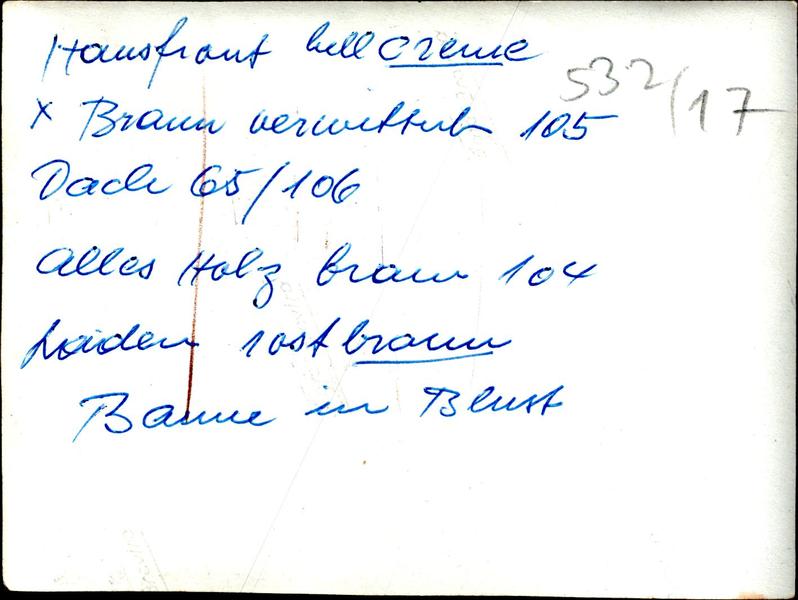 Hausfront hellcreme
532/17
x Braun verwittert 105
Dach 65/106
Alles Holz braun 104
Läden rostbraun
Bäume in Blust